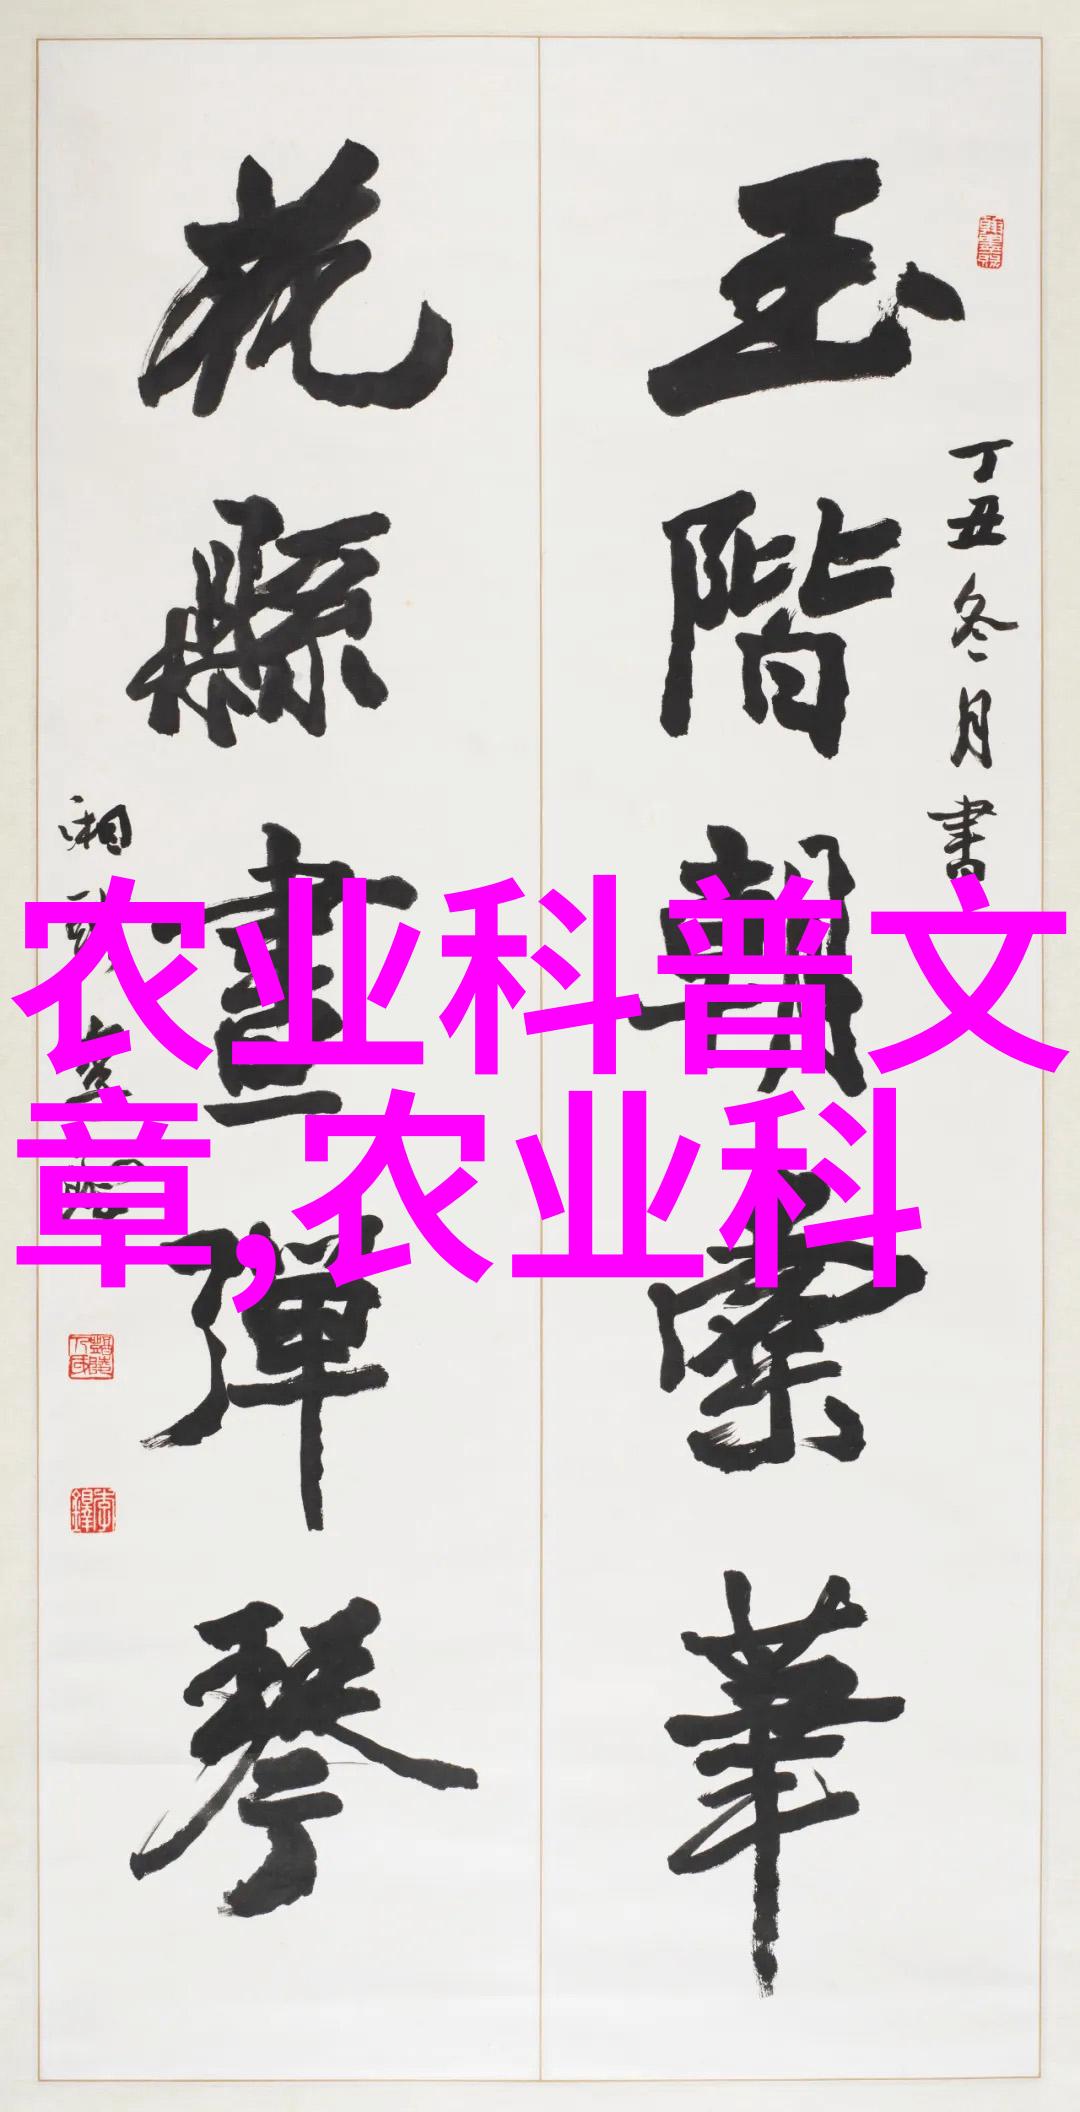 玉階朝霽華
丁丑冬月書
花縣畫彈琴
农业科普文
章,农业科